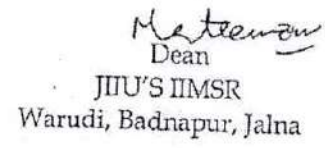 Dean
JIIU'S IIMSR
Warudi, Badnapur, Jalna